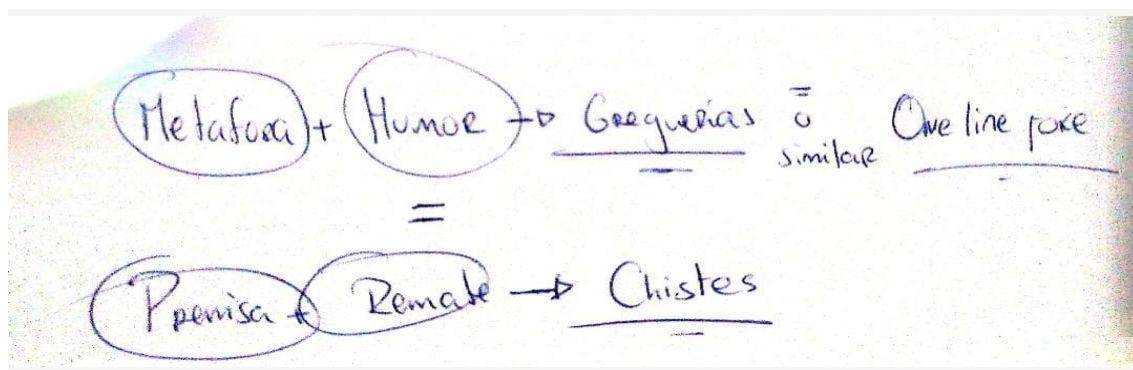 Metafora + Humor → Greguerias = o similar One line joke
=
Premisa + Remate → Chistes